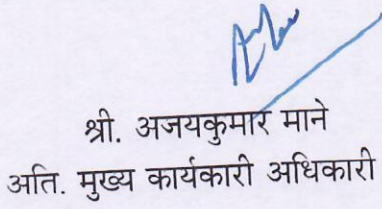 श्री. अजयकुमार माने
अति. मुख्य कार्यकारी अधिकारी